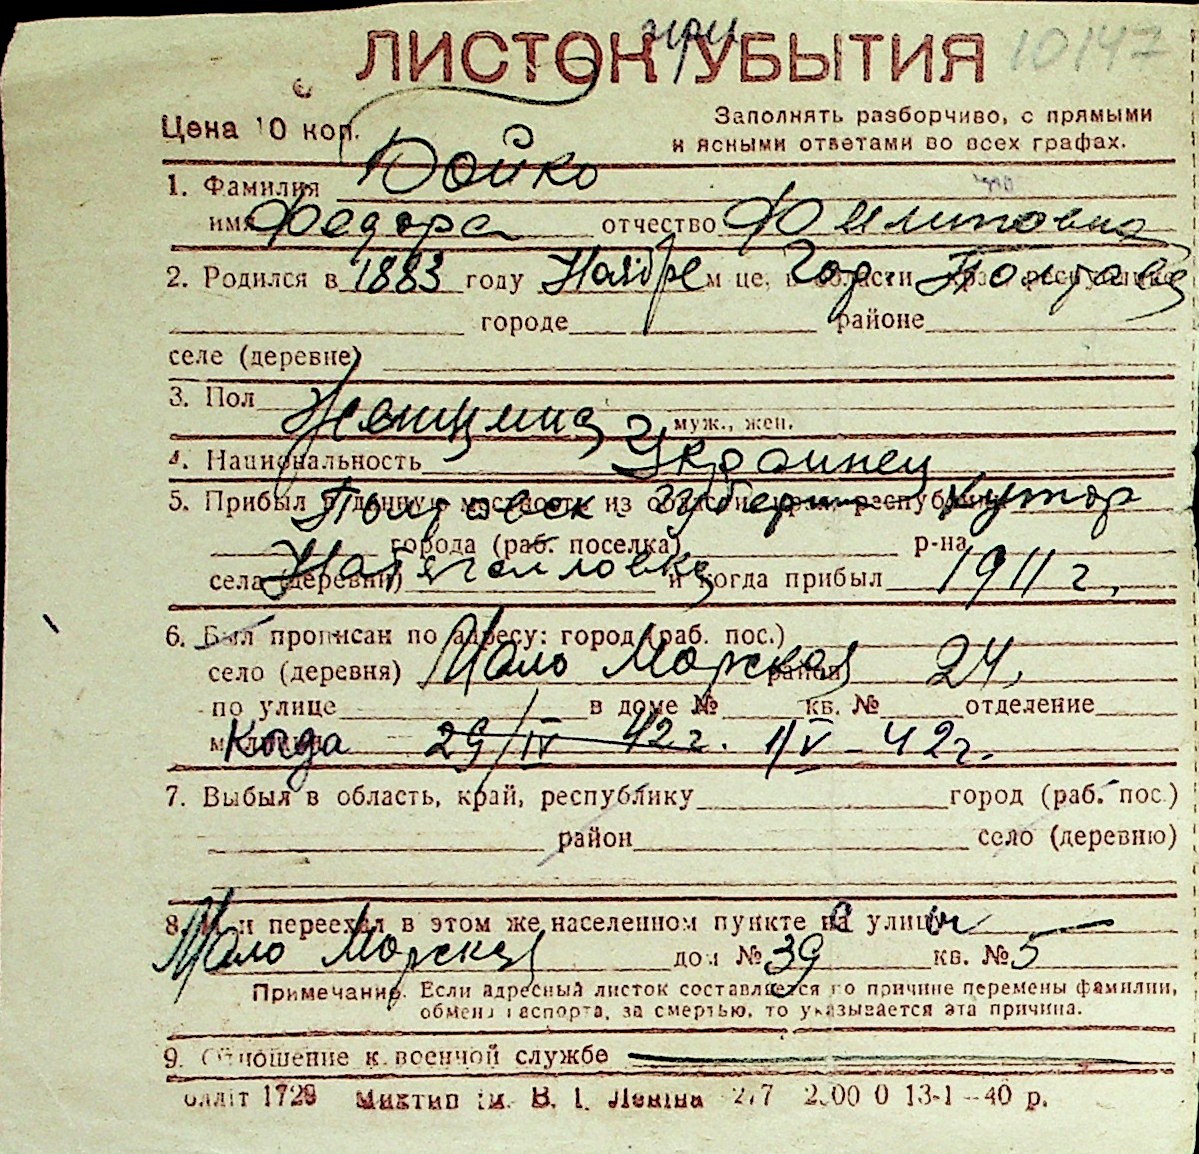 ЛИСТОК УБЫТИЯ 10147
Цена 10 коп. Заполнять разборчиво, с прямыми
и ясными ответами во всех графах.
1. Фамилия Бойко
имя Федора отчество Филиповна
2. Родился в 1883 году Ноябре м це, в области Гор. Полтаве
городе районе
селе (деревне)
3. Пол Женщина муж., жен.
4. Национальность Украинец
5. Прибыл в данную местность из области края республики Полтавск. Губерн Хутор
города (раб. поселка) р-на
села (деревни) и когда прибыл 1911 г.
6. Был прописан по адресу: город (раб. пос.)
село (деревня) Мало Морская район 24.
по улице в доме № кв. № отделение
Когда 29/IV 42 г. 1/V-42 г.
7. Выбыл в область, край, республику город (раб. пос.)
район село (деревню)
8. Или переехал в этом же населенном пункте на улицу
Мало Морская дом № 39 кв. № 5
Примечание. Если адресный листок составляется по причине перемены фамилии,
обмена паспорта, за смертью, то указывается эта причина.
9. Отношение к военной службе
1729 В. І. Леніна 2.7 13-1-40 р.